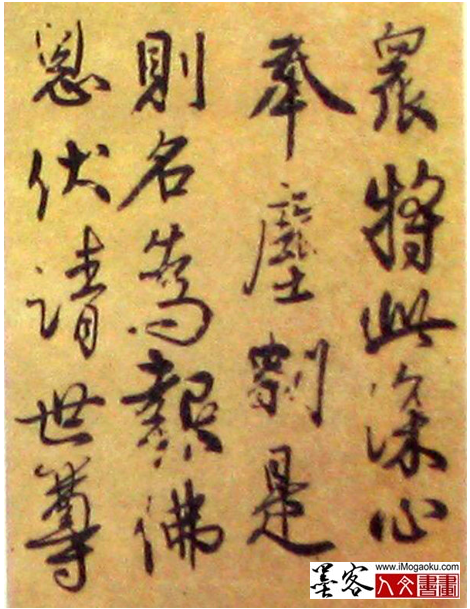 眾將此深心
奉塵剎是
則名為報佛
恩伏請世尊
墨客
www.iMogaoku.com
人文書畫